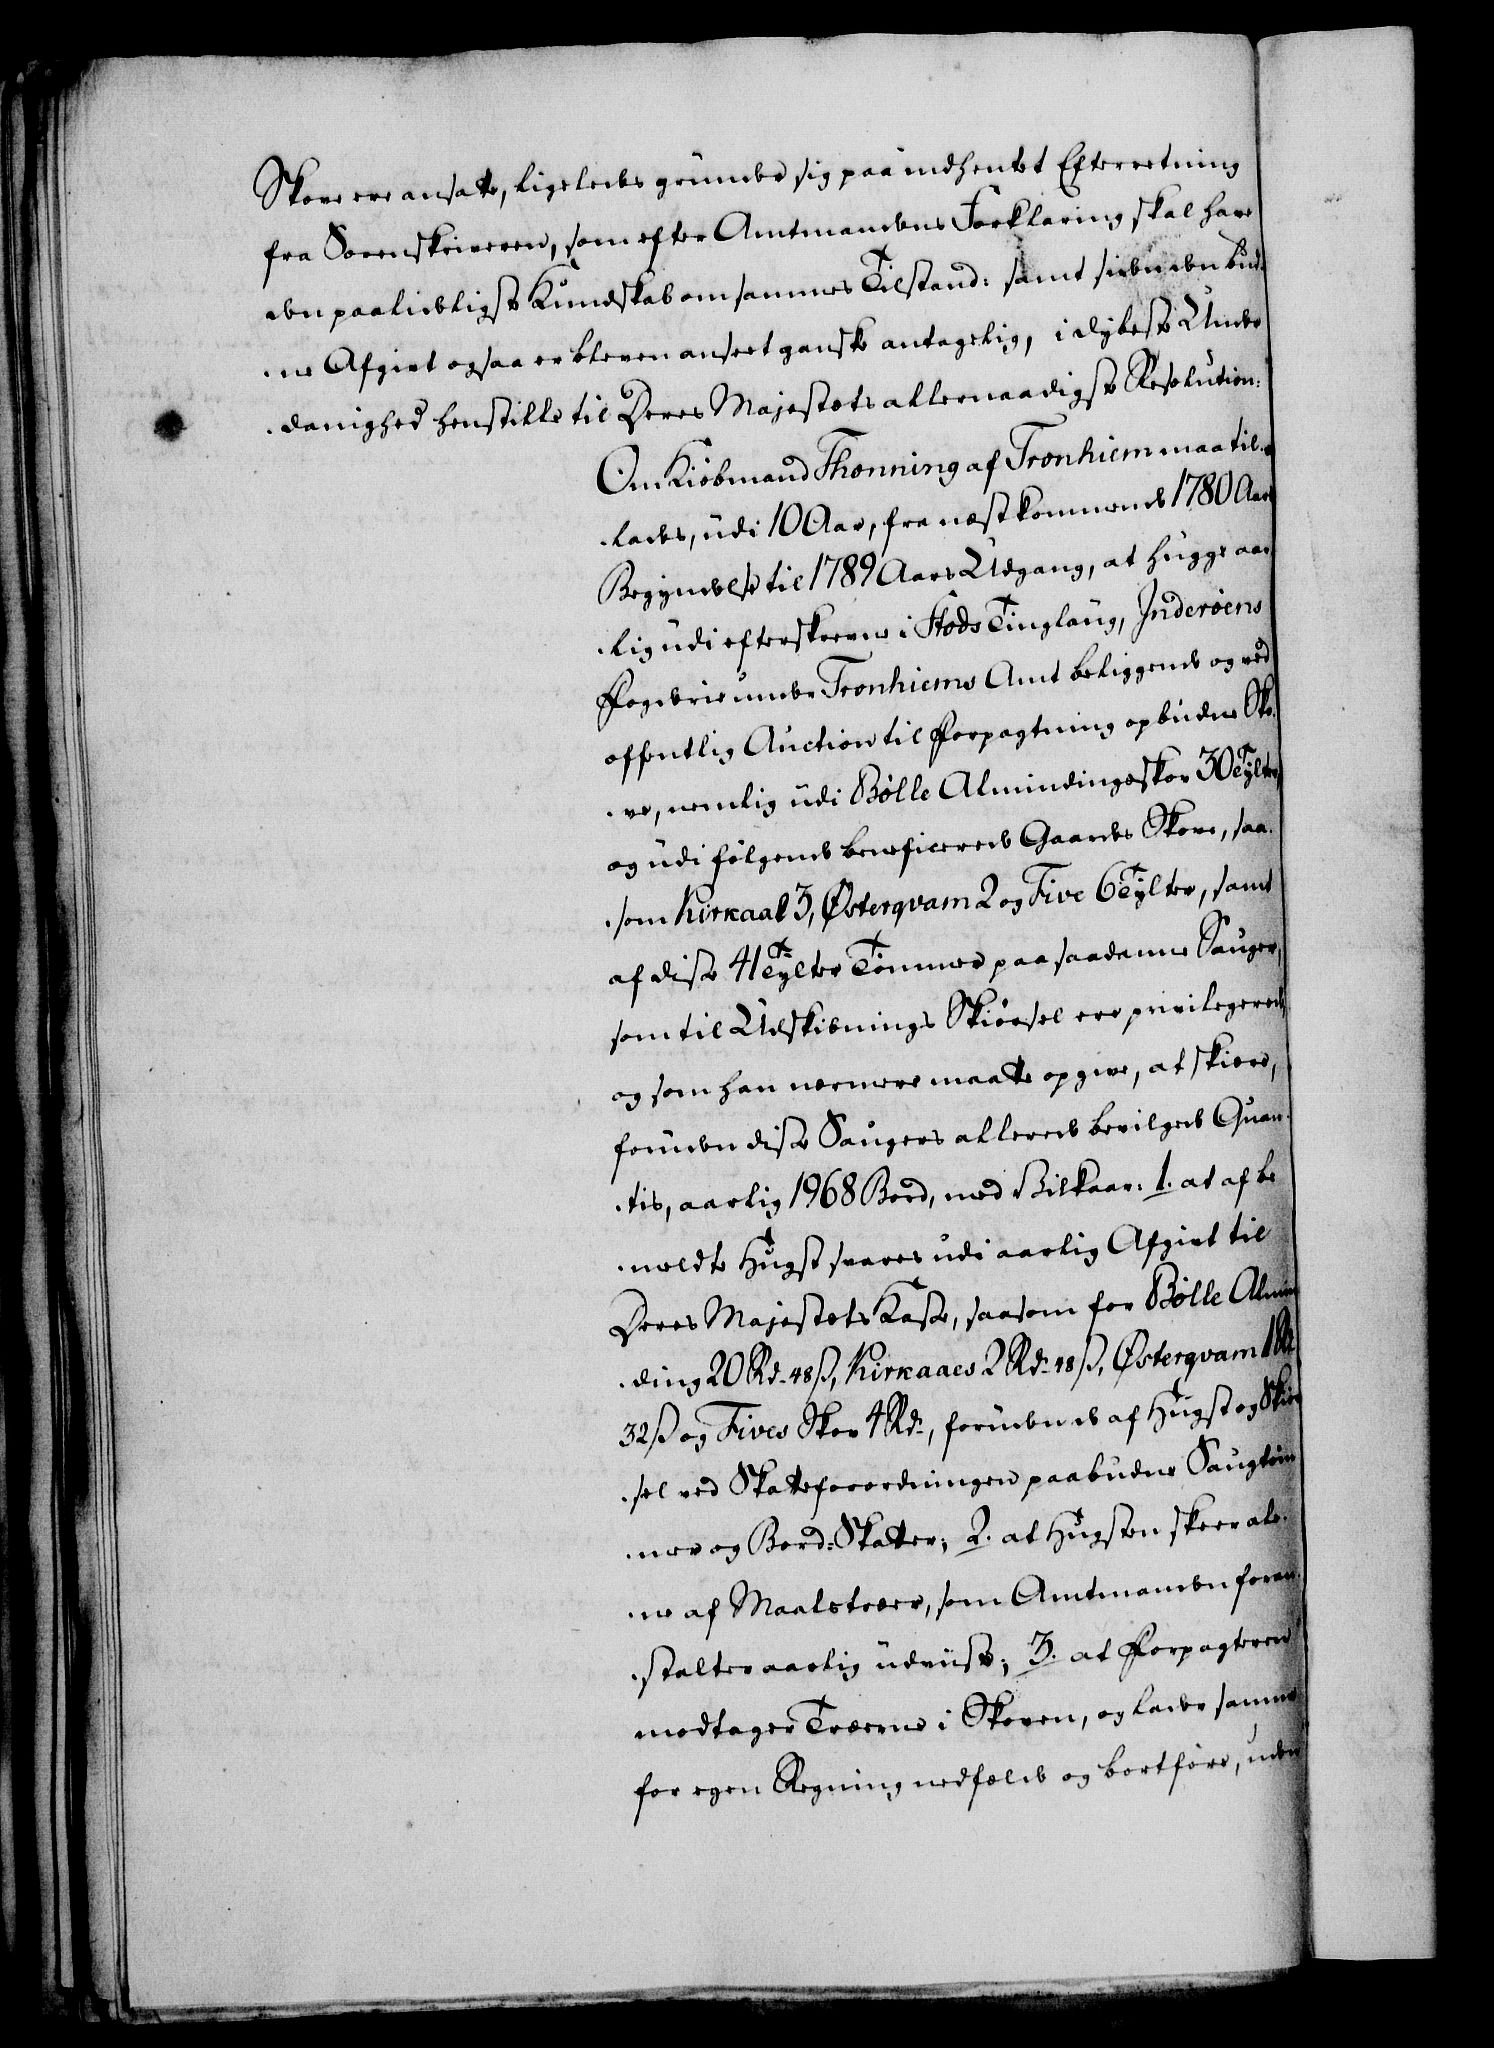 Skove ere ansatte, ligeledes grunder sig paa indhentet Efterretning
fra Sorenskriveren, som efter Amtmandens Forklaring skal have
den paalideligste Kundskab om sammes Tilstand: samt siden den bud-
-ne Afgivt ogsaa er bleven anseet ganske antagelig, i dybeste Under
-danighed henstille til Deres Majestæts allernaadigste Resolution:
Om Kiøbmand Thonning af Tronhiem maa til-
-lades, udi 10 Aar, fra næstkommende 1780 Aars
Begyndelse til 1789 Aars Udgang, at hugge aar-
-lig udi efterskrevne i Stods Tinglaug, Inderøens
Fogderie under Tronhiems Amt beliggende og ved
offentlig Auction til Forpagtning opbudne Sko-
-ve, nemlig udi Bølle Almindingsskov 30 Tylter,
og udi følgende beneficerede Gaardes Skove, saa-
-som Kirkaal 3, Østerqvam 2 og Five 6 Tylter, samt
af disse 41 Tylter Tømmer paa saadanne Sauger,
som til Udskibnings Skiørsel ere privilegerede,
og som han nærmere maatte opgive, at skiære,
foruden disse Saugers allerede bevilgede Quan-
-tis, aarlig 1968 Bord, med Vilkaar: 1. at af be
-meldte Hugst svares udi aarlig Afgivt til
Deres Majestæts Kasse, saasom for Bølle Almin
-ding 20 Rd. 48 ß, Kirkaaes 2 Rd. 48 ß, Østerqvam 1 Rd.
32 ß og Fives Skov 4 Rd., foruden de af Hugst og Skiør
-sel ved Skatteforordningen paabudne Saugtøm
-mer og Bord-Skatter; 2. at Hugsten skeer ale-
-ne af Maalstræer, som Amtmanden foran-
-stalter aarlig udviist; 3. at Forpagteren
modtager Træerne i Skoven, og lader samme
for egen Regning nedfælde og bortføre, uden